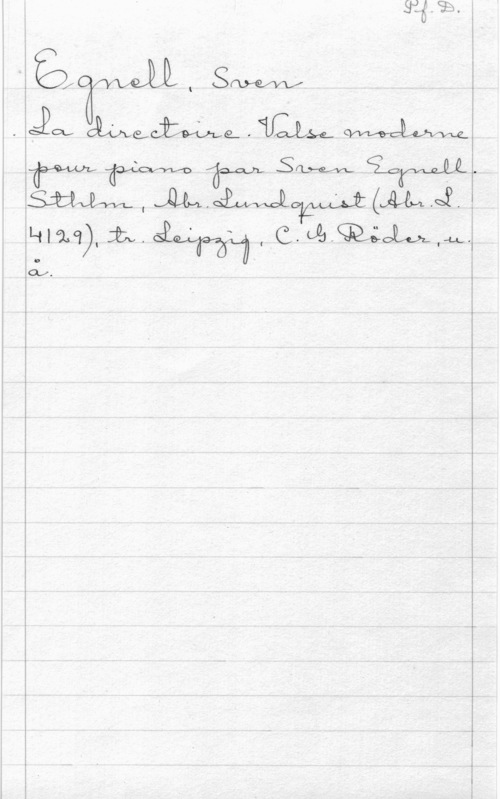 Pf. D.
Egnell, Sven
La directoire. Valse moderne
pour piano par Sven Egnell.
Sthlm, Abr. Lundquist (Abr. L.
4129), tr. Leipzig, C. G. Röder, u.
å.